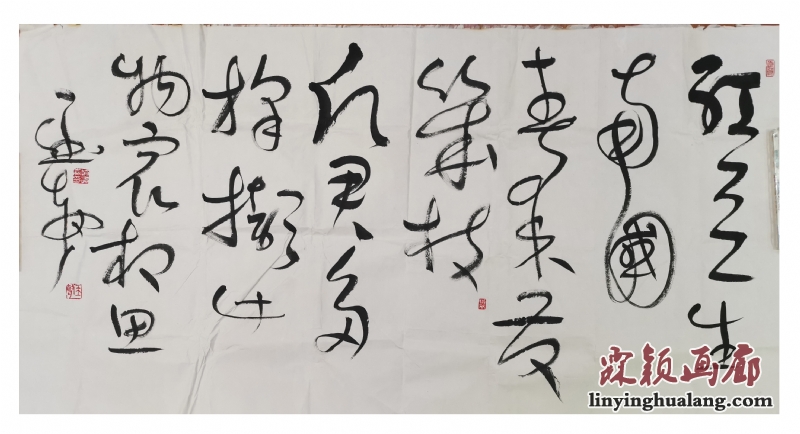 红豆生
南國
春来发
幾枝
愿君多
採撷此
物最相思
霖颖画廊
linyinghualang.com